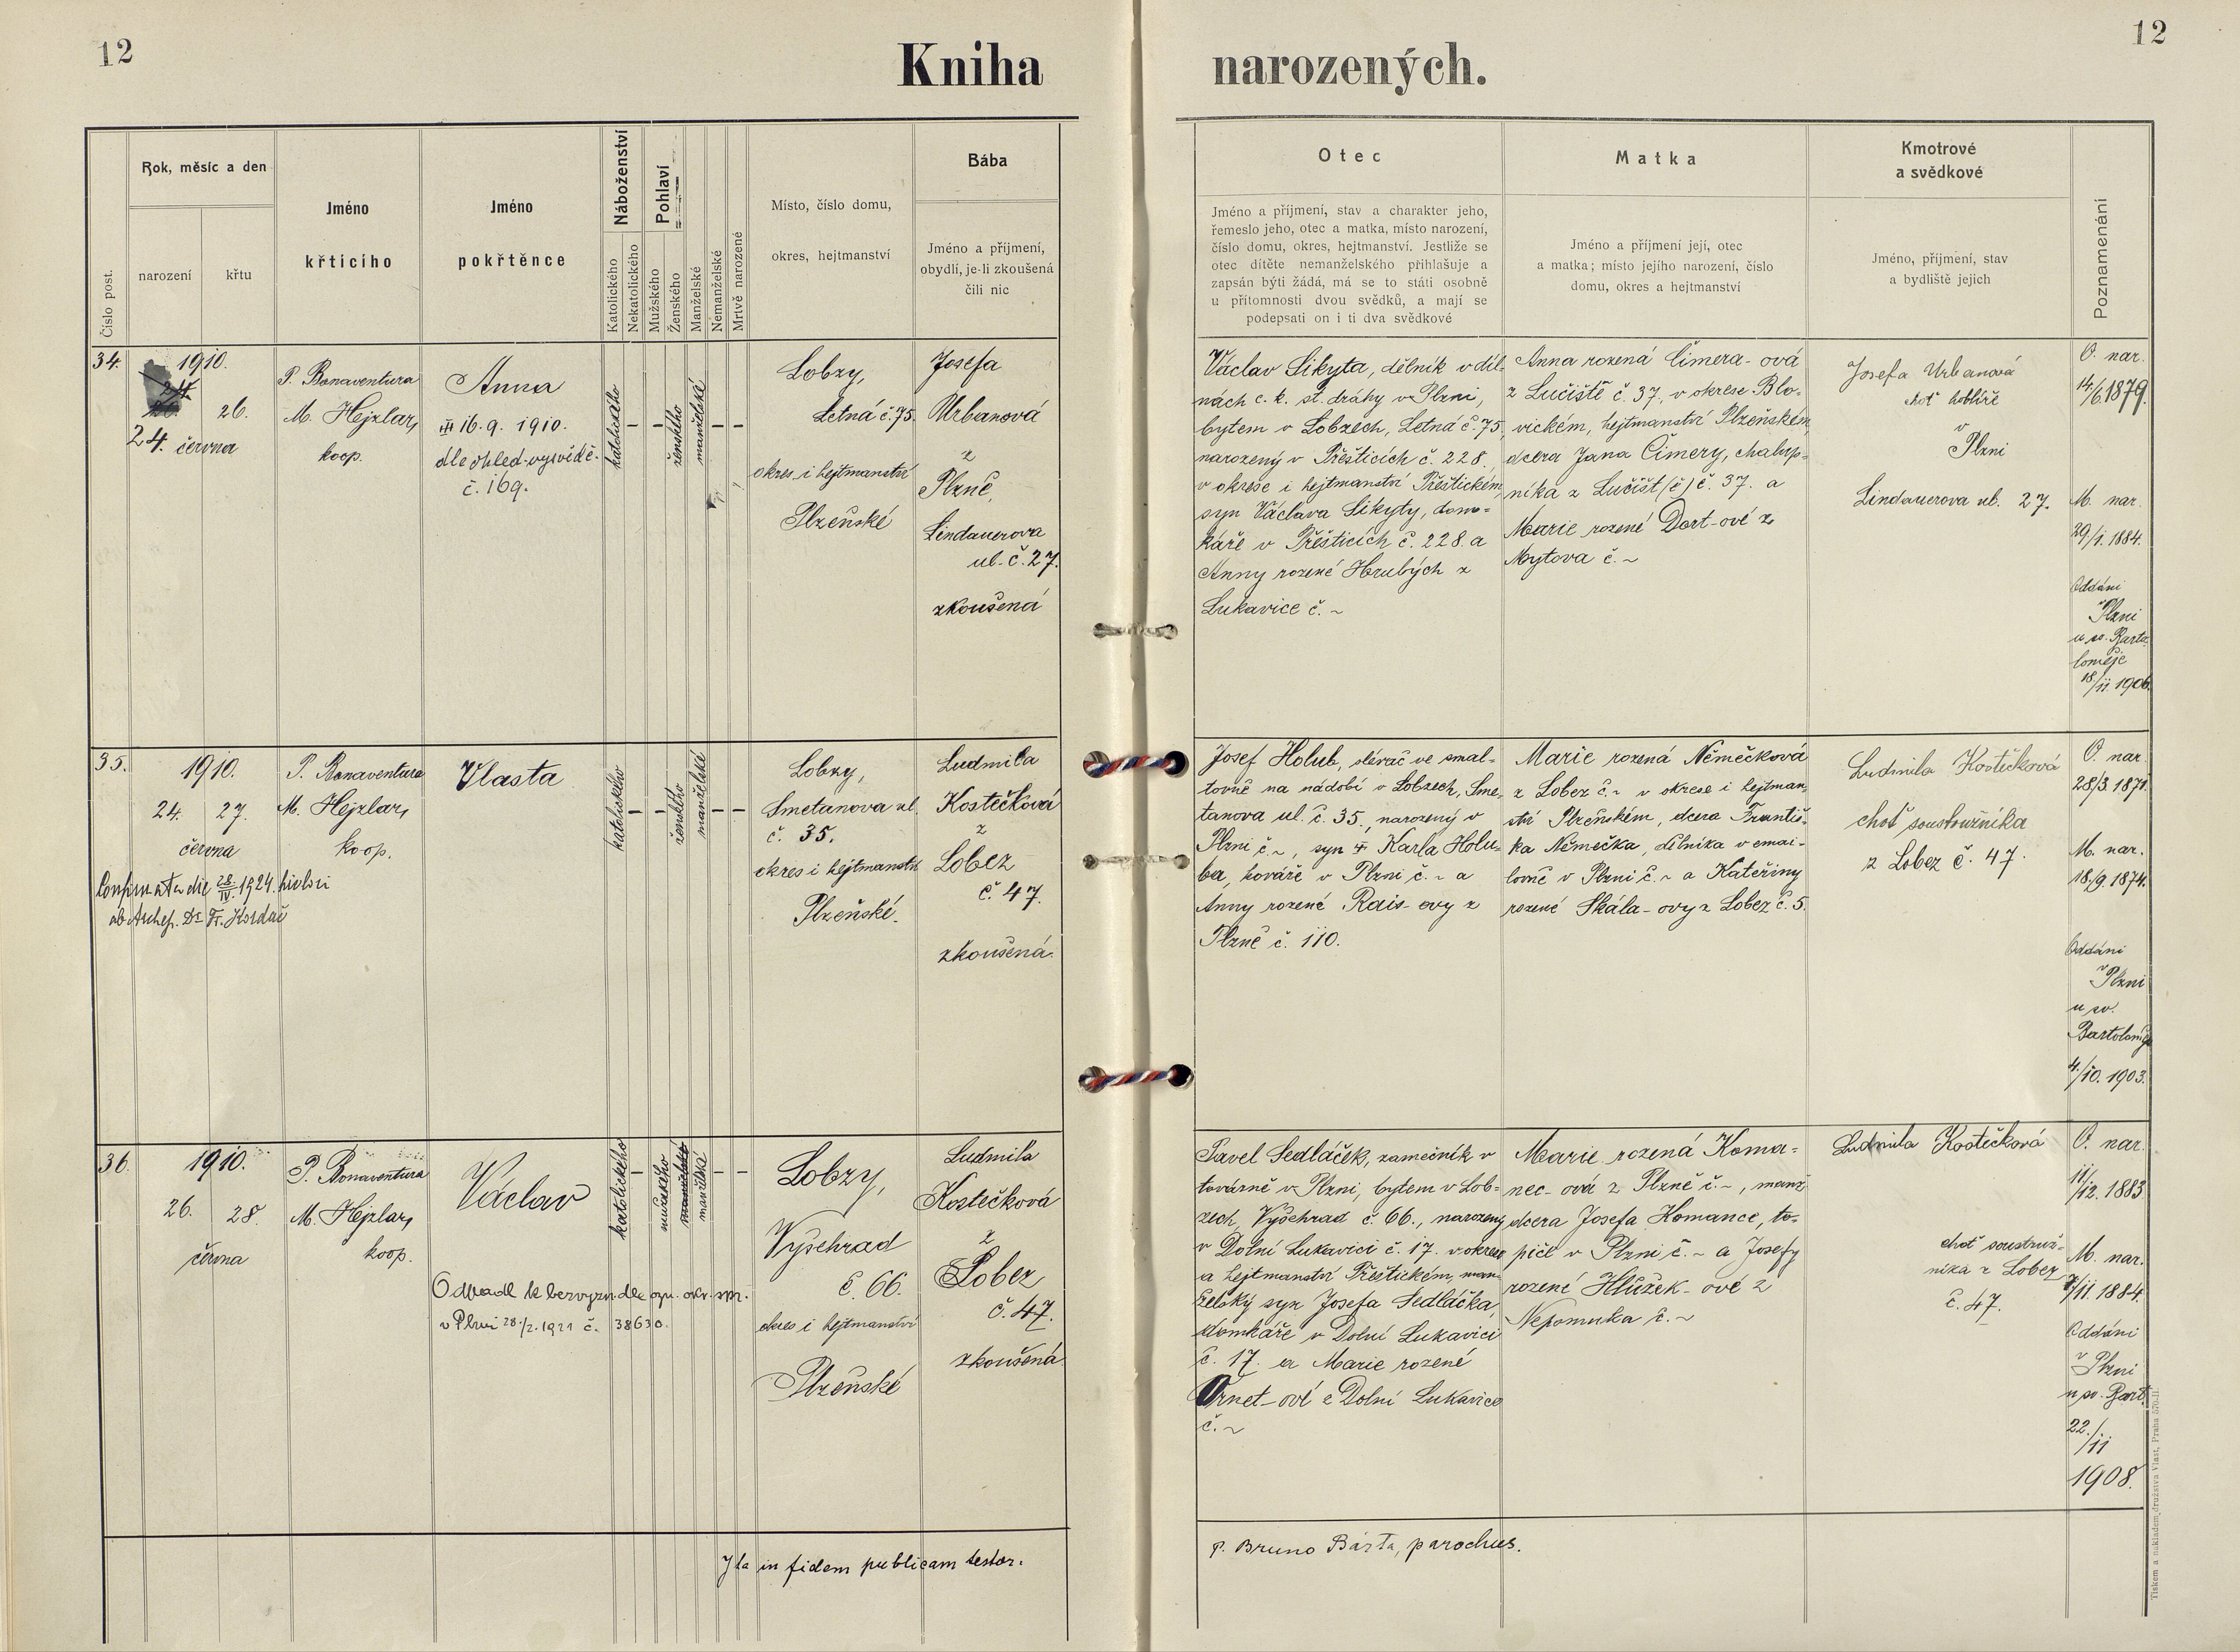 12
Kniha
narozených.
12
Číslo post.
Rok, měsíc a den
narození
křtu
Jméno
křticího
Jméno
pokřtěnce
Náboženství
Katolického
Nekatolického
Pohlaví
Mužského
Ženského
Manželské
Nemanželské
Mrtvě narozené
Místo, číslo domu,
okres, hejtmanství
Bába
Jméno a příjmení,
obydlí, je-li zkoušená
čili nic
Otec
Jméno a příjmení, stav a charakter jeho,
řemeslo jeho, otec a matka, místo narození,
číslo domu, okres, hejtmanství. Jestliže se
otec dítěte nemanželského přihlašuje a
zapsán býti žádá, má se to státi osobně
u přítomnosti dvou svědků, a mají se
podepsati on i ti dva svědkové
Matka
Jméno a příjmení její, otec
a matka; místo jejího narození, číslo
domu, okres a hejtmanství
Kmotrové
a svědkové
Jméno, příjmení, stav
a bydliště jejich
Poznamenání
34.
1910.
26.
24. června
P. Bonaventura
M. Hejzlar,
koop.
Anna
16. 9. 1910.
dle ohled. vysvědč.
č. 169.
katolického
–
–
ženského
manželské
–
–
Lobzy,
Letná č. 75.
okres i hejtmanství
Plzeňské
Josefa
Urbanová
z
Plzně,
Lindauerova
ul. č. 27.
zkoušená
Václav Sikyta, dělník v díl-
nách c. k. st. dráhy v Plzni,
bytem v Lobzech, Letná č. 75,
narozený v Přešticích č. 228.,
v okrese i hejtmanství Přeštickém,
syn Václava Sikyty, dom-
káře v Přešticích č. 228. a
Anny rozené Hrubých z
Lukavice č. ~
Anna rozená Čimera-ová
z Lučiště č. 37, v okrese Blo-
vickém, hejtmanství Plzeňském,
dcera Jana Čimery, chalup-
níka z Lučišt (č) č. 37. a
Marie rozené Dort-ové z
Mytova č. ~
Josefa Urbanová
choť
v
Plzni
Lindauerova ul. 27.
O. nar.
14/6. 1879.
M. nar.
29/1. 1884.
Oddáni
v Plzni
u sv. Barto-
loměje
18/11. 1906.
35.
1910.
24. 27.
června
Confirmata die 28/IV. 1924. hic loci
ab Archep. Dr. Fr. Kordač
P. Bonaventura
M. Hejzlar,
koop.
Vlasta
katolického
–
–
ženského
manželské
–
–
Lobzy,
Smetanova ul.
č. 35.
okres i hejtmanství
Plzeňské.
Ludmila
Kostečková
z
Lobez
č. 47.
zkoušená.
Josef Holub, slévač ve smal-
tovně na nádobí v Lobzech, Sme-
tanova ul. č. 35., narozený v
Plzni č. ~, syn Karla Holu-
ba, kováře v Plzni č. ~ a
Anny rozené Rais-ovy z
Plzně č. 110.
Marie rozená Němečková
z Lobez č. ~ v okrese i hejtman-
ství Plzeňském, dcera Františ-
ka Němečka, dělníka v emai-
lovně v Plzni č. ~ a Kateřiny
rozené Skála-ovy z Lobez č. 5.
Ludmila Kostečková
choť soustružníka
z Lobez č. 47.
O. nar.
28/3. 1871.
M. nar.
18./9. 1874.
Oddáni
v Plzni
u sv.
Bartoloměje
4./10. 1903.
36.
1910.
26. 28.
června
P. Bonaventura
M. Hejzlar,
koop.
Václav
Odpadl k bezvyzn. dle ozn. okr. spr.
v Plzni 28./2. 1921 č. 38630.
katolického
–
mužského
manželské
manželské
–
–
Lobzy,
Vyšehrad
č. 66.
okres i hejtmanství
Plzeňské
Ludmila
Kostečková
z
Lobez
č. 47.
zkoušená.
Pavel Sedláček, zámečník v
továrně v Plzni, bytem v Lob-
zech, Vyšehrad č. 66., narozený
v Dolní Lukavici č. 17. v okrese
a hejtmanství Přeštickém, man-
želský syn Josefa Sedláčka,
domkáře v Dolní Lukavici
č. 17. a Marie rozené
Ornet-ové z Dolní Lukavice
č. ~
Marie rozená Koma-
nec-ová z Plzně č. ~, manž.
dcera Josefa Komance, to-
piče v Plzni č. ~ a Josefy
rozené Hlůžek-ové z
Nepomuka č. ~
Ludmila Kostečková
choť soustruž-
níka z Lobez
č. 47.
O. nar.
11/12. 1883
M. nar.
/11. 1884.
Oddáni
v Plzni
u sv. Bart.
22./11
1908.
Ita in fidem publicam testor.
P. Bruno Bárta, parochus.
Tiskem a nákladem družstva Vlast, Praha 570-II.